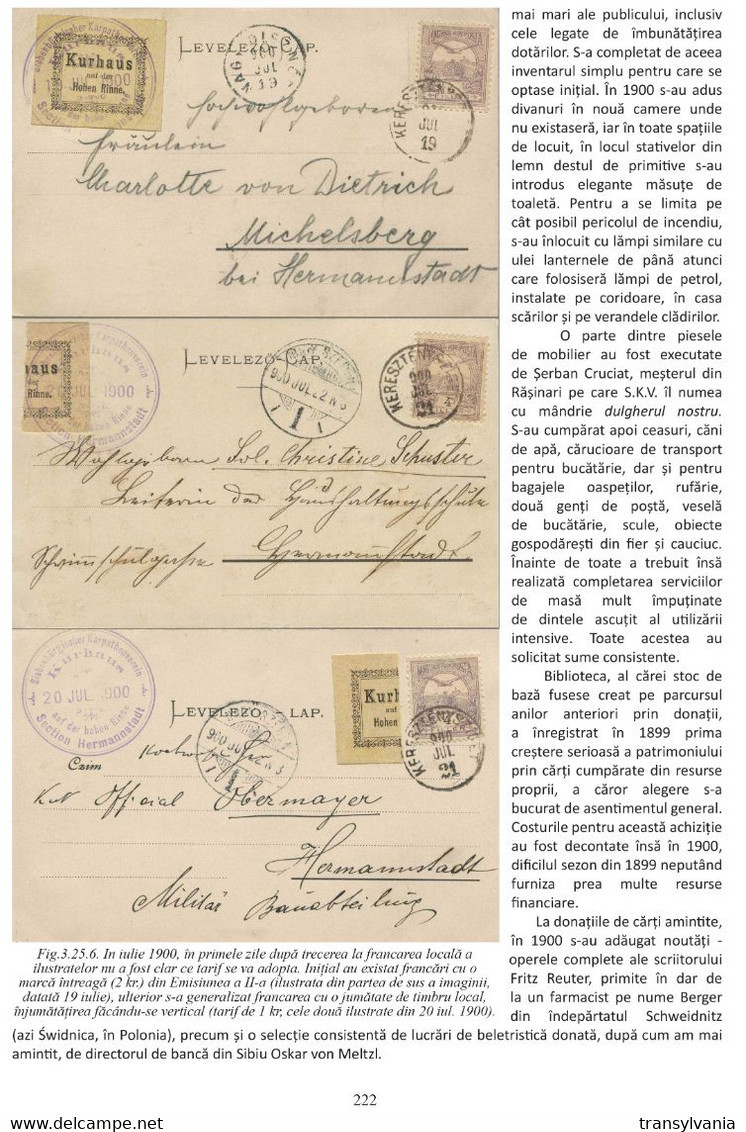 Siebenbürgischer Karpathenverein
Kurhaus
auf der
Hohen Rinne.
LEVELEZŐ-LAP.
NAGYDISZNÓD
900
JUL
19
KERESZTÉNYSZIGET
JUL
19
Hochwohlgeboren
Fräulein
Charlotte von Dietrich
Michelsberg
bei Hermannstadt
haus
der
Rinne.
Karpathenverein
JUL 1900
der hohen Rinne
Section Hermannstadt
LEVELEZŐ-LAP.
900 JUL 22 N 3
1
KERESZTÉNYSZIGET
900
JUL
21
Wohlgeborn Frl. Christine Schuster
Leiterin der Haushaltungsschule
Schwimmschulgasse Hermannstadt
Siebenbürgischer Karpathenverein
Kurhaus
20 JUL 1900
auf der hohen Rinne
Section Hermannstadt
LEVELEZŐ-LAP.
900 JUL 22 N 3
1
Kurh
auf
Hohen
KERESZTÉNYSZIGET
900
JUL
21
Czim
Official Obermayer
Hermannstadt
Militär Bauabteilung
Fig.3.25.6. In iulie 1900, în primele zile după trecerea la francarea locală a
ilustratelor nu a fost clar ce tarif se va adopta. Inițial au existat francări cu o
marcă întreagă (2 kr.) din Emisiunea a II-a (ilustrata din partea de sus a imaginii,
datată 19 iulie), ulterior s-a generalizat francarea cu o jumătate de timbru local,
înjumătățirea făcându-se vertical (tarif de 1 kr, cele două ilustrate din 20 iul. 1900).
mai mari ale publicului, inclusiv
cele legate de îmbunătățirea
dotărilor. S-a completat de aceea
inventarul simplu pentru care se
optase inițial. În 1900 s-au adus
divanuri în nouă camere unde
nu existaseră, iar în toate spațiile
de locuit, în locul stativelor din
lemn destul de primitive s-au
introdus elegante măsuțe de
toaletă. Pentru a se limita pe
cât posibil pericolul de incendiu,
s-au înlocuit cu lămpi similare cu
ulei lanternele de până atunci
care folosiseră lămpi de petrol,
instalate pe coridoare, în casa
scărilor și pe verandele clădirilor.
O parte dintre piesele
de mobilier au fost executate
de Șerban Cruciat, meșterul din
Rășinari pe care S.K.V. îl numea
cu mândrie dulgherul nostru.
S-au cumpărat apoi ceasuri, căni
de apă, cărucioare de transport
pentru bucătărie, dar și pentru
bagajele oaspeților, rufărie,
două genți de poștă, veselă
de bucătărie, scule, obiecte
gospodărești din fier și cauciuc.
Înainte de toate a trebuit însă
realizată completarea serviciilor
de masă mult împuținate
de dintele ascuțit al utilizării
intensive. Toate acestea au
solicitat sume consistente.
Biblioteca, al cărei stoc de
bază fusese creat pe parcursul
anilor anteriori prin donații,
a înregistrat în 1899 prima
creștere serioasă a patrimoniului
prin cărți cumpărate din resurse
proprii, a căror alegere s-a
bucurat de asentimentul general.
Costurile pentru această achiziție
au fost decontate însă în 1900,
dificilul sezon din 1899 neputând
furniza prea multe resurse
financiare.
La donațiile de cărți amintite,
în 1900 s-au adăugat noutăți -
operele complete ale scriitorului
Fritz Reuter, primite în dar de
la un farmacist pe nume Berger
din îndepărtatul Schweidnitz
(azi Świdnica, în Polonia), precum și o selecție consistentă de lucrări de beletristică donată, după cum am mai
amintit, de directorul de bancă din Sibiu Oskar von Meltzl.
222
www.delcampe.net
transylvania